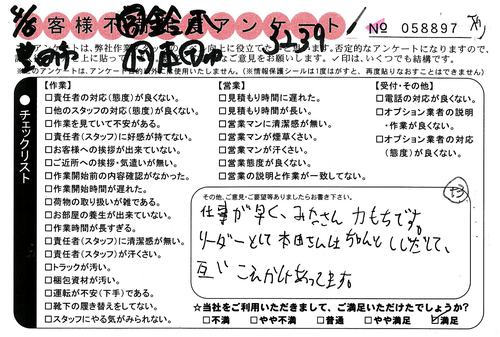 お客様不満足度アンケート
№ 058897
3239
このアンケートは、弊社作業
不満アンケートは、アンケート目的以外には使用いたしません。(※情報保護シールは1度はがすと、再度貼りなおすことはできません)
チェックリスト
【作業】
□責任者の対応(態度)が良くない。
□他のスタッフの対応(態度)が良くない。
□作業を見ていて不安がある。
□責任者(スタッフ)に好感が持てない。
□お客様への挨拶が出来ていない。
□ご近所への挨拶・気遣いが無い。
□作業開始前の内容確認がなかった。
□作業開始時間が遅れた。
□荷物の取り扱いが雑である。
□お部屋の養生が出来ていない。
□作業時間が長すぎる。
□責任者(スタッフ)に清潔感が無い。
□責任者(スタッフ)が汗くさい。
□トラックが汚い。
□梱包資材が汚い。
□運転が不安(下手)である。
□靴下の履き替えをしてない。
□スタッフにやる気がみられない。
【営業】
□見積もり時間に遅れた。
□見積もり時間が長い。
□営業マンに清潔感が無い。
□営業マンが煙草くさい。
□営業マンが汗くさい。
□営業態度が良くない。
□営業の説明と作業が一致してない。
【受付・その他】
□電話の対応が良くない。
□オプション業者の説明
・作業が良くない。
□オプション業者の対応
(態度)が良くない。
その他、ご意見・ご要望等ありましたらお書き下さい。
仕事が早く、みなさん 力もちです。
リーダーとして本田さんはちゃんと しじだして、
互い こえかけあってます。
☆当社をご利用いただきまして、ご満足いただけたでしょうか?
□不満 □やや不満 □普通 □やや満足 ☑満足